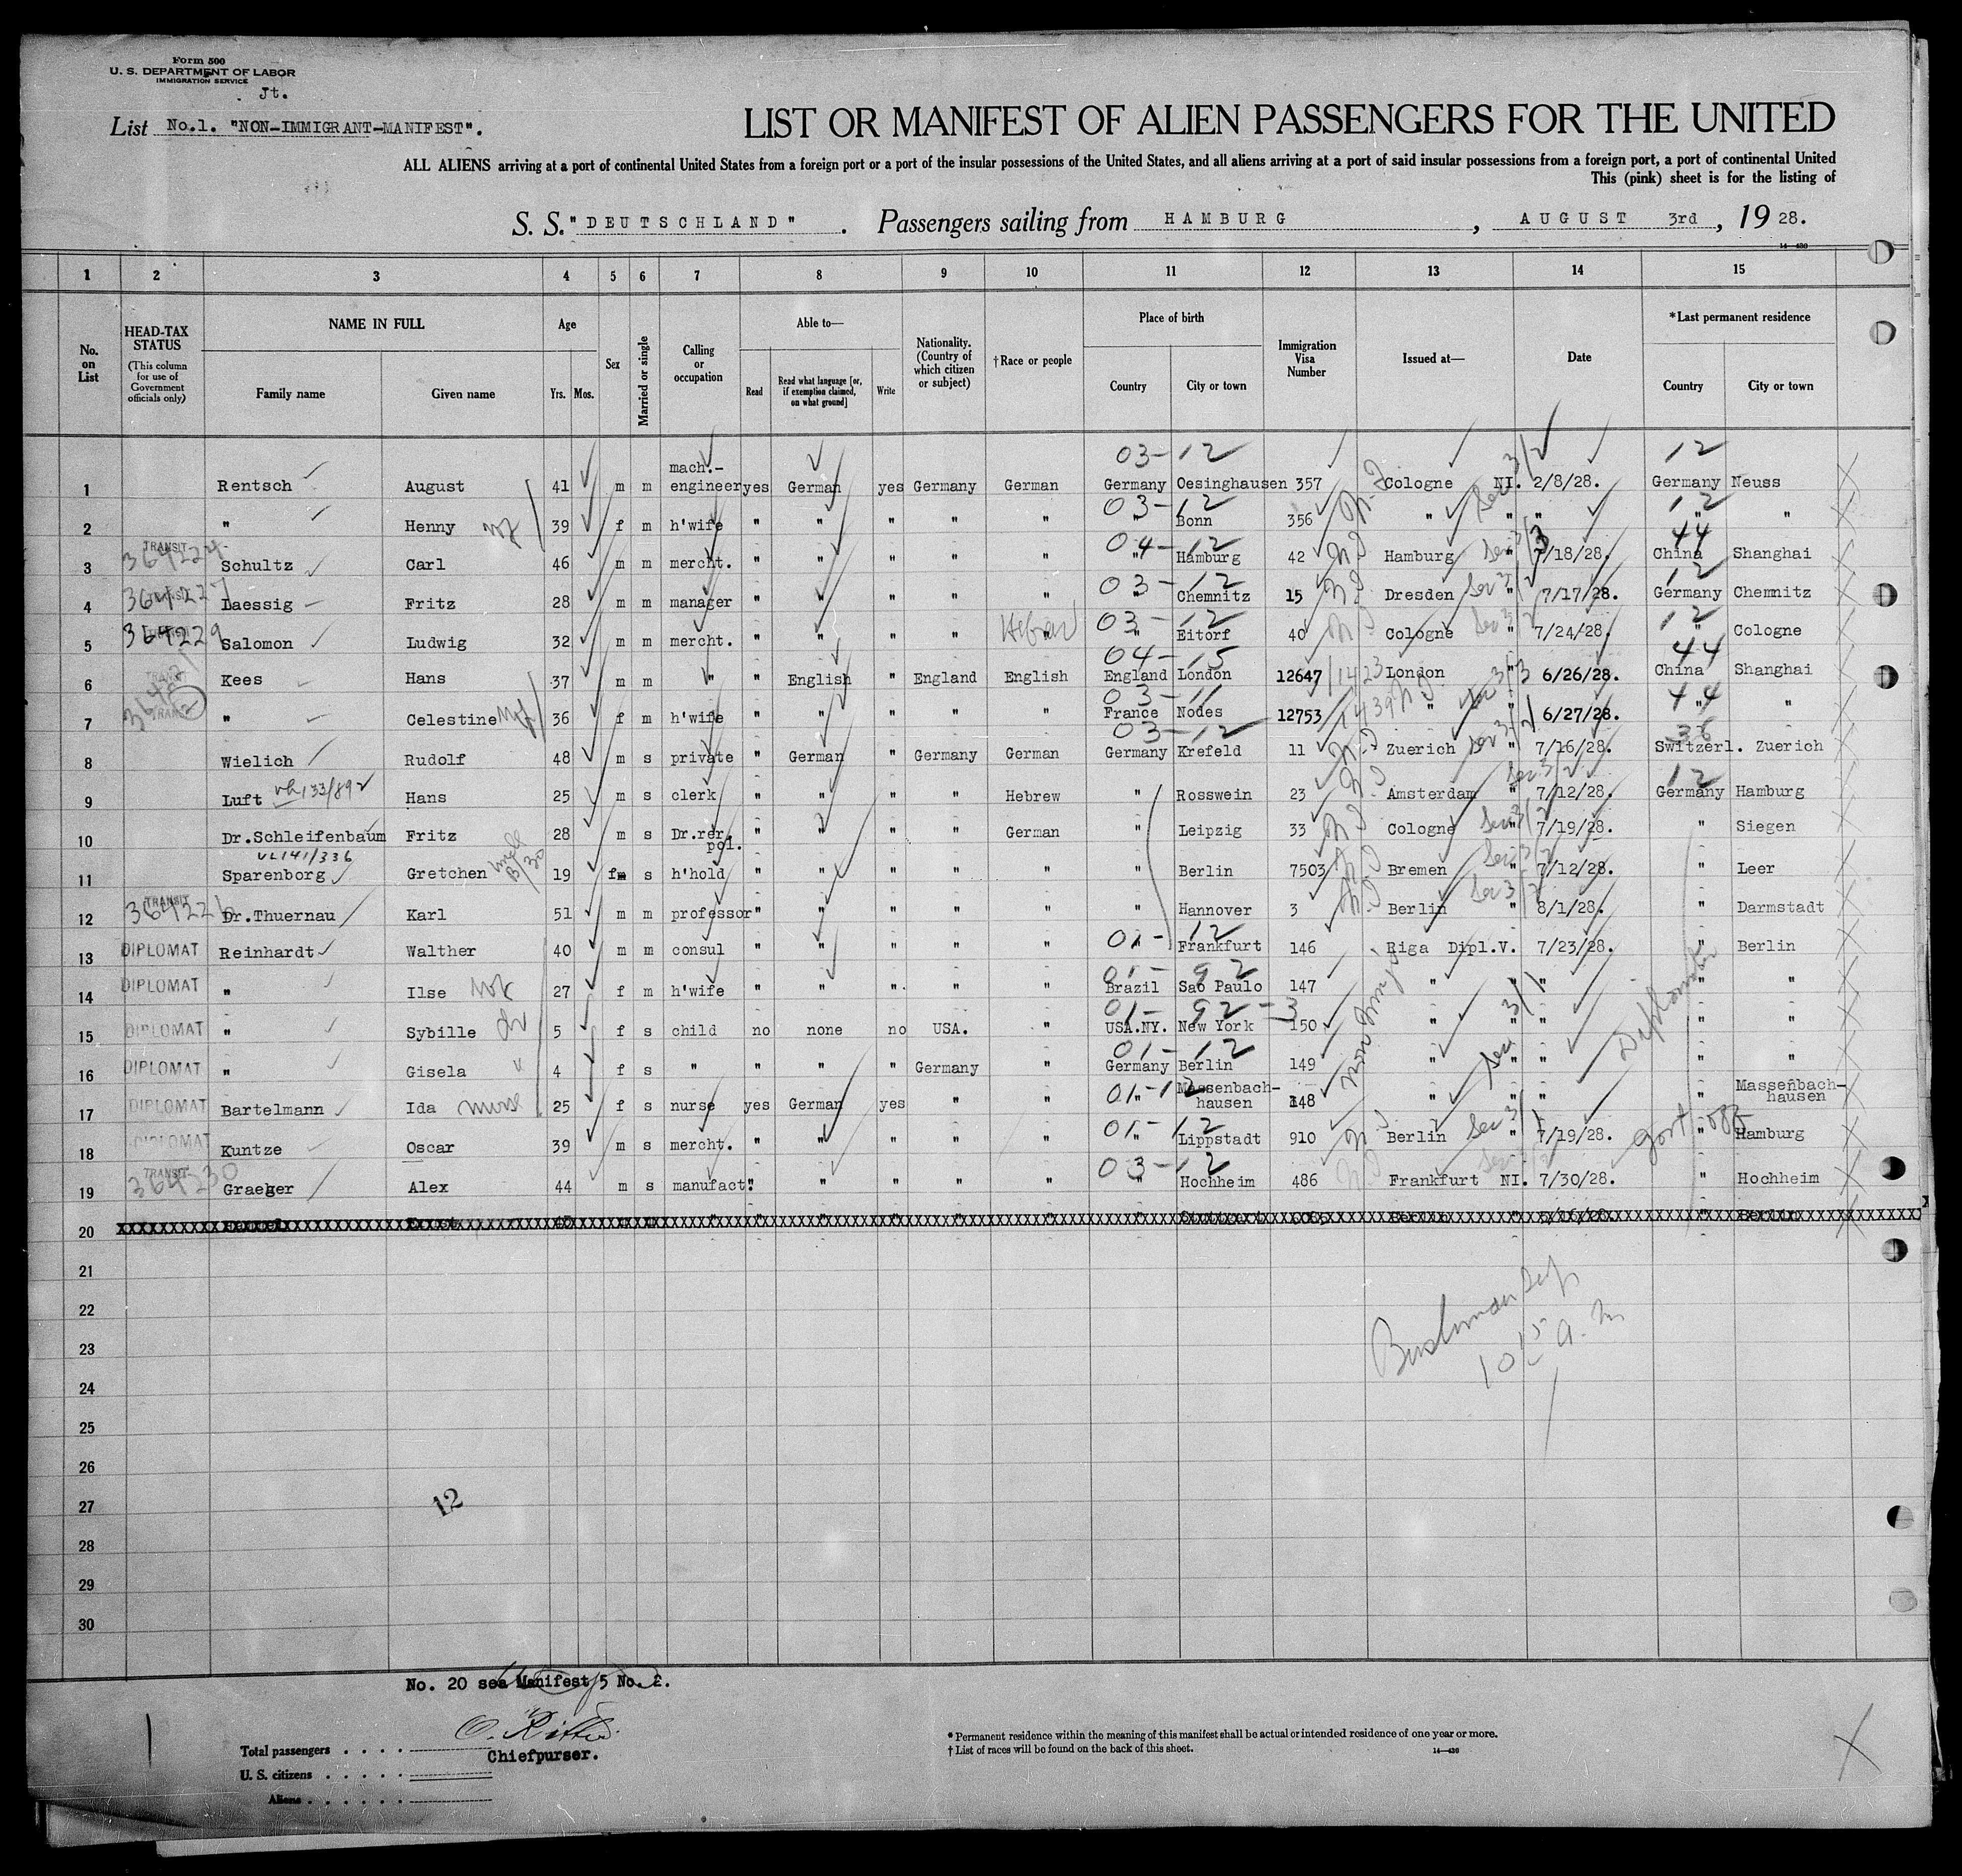 Form 500
U. S. DEPARTMENT OF LABOR
IMMIGRATION SERVICE
Jt.
List No.1. "NON-IMMIGRANT-MANIFEST".
LIST OR MANIFEST OF ALIEN PASSENGERS FOR THE UNITED
ALL ALIENS arriving at a port of continental United States from a foreign port or a port of the insular possessions of the United States, and all aliens arriving at a port of said insular possessions from a foreign port, a port of continental United
This (pink) sheet is for the listing of
S. S. "DEUTSCHLAND". Passengers sailing from HAMBURG, AUGUST 3rd, 19 28.
14—430
1 2 3 4 5 6 7 8 9 10 11 12 13 14 15
No. on List
HEAD-TAX STATUS (This column for use of Government officials only)
NAME IN FULL Family name Given name
Age Yrs. Mos.
Sex
Married or single
Calling or occupation
Able to— Read Read what language [or, if exemption claimed, on what ground] Write
Nationality. (Country of which citizen or subject)
†Race or people
Place of birth Country City or town
Immigration Visa Number
Issued at—
Date
*Last permanent residence Country City or town
03-12 12
1 Rentsch August 41 m m mach.-engineer yes German yes Germany German Germany Oesinghausen 357 Cologne NI. 2/8/28. Germany Neuss
03-12 12
2 " Henny 39 f m h'wife " " " " " " Bonn 356 " " " " "
04-12 44
3 TRANSIT 364224 Schultz Carl 46 m m mercht. " " " " " " Hamburg 42 Hamburg " 7/18/28. China Shanghai
03-12 12
4 364227 Laessig Fritz 28 m m manager " " " " " " Chemnitz 15 Dresden " 7/17/28. Germany Chemnitz
03-12 12
5 364229 Salomon Ludwig 32 m m mercht. " " " " " Hebrew " Eitorf 40 Cologne " 7/24/28. " Cologne
04-15 44
6 Kees Hans 37 m m " " English " England English England London 12647/1423 London " 6/26/28. China Shanghai
03-11 44
7 " Celestine 36 f m h'wife " " " " " France Nodes 12753/1439 " " 6/27/28. " "
03-12 36
8 Wielich Rudolf 48 m s private " German " Germany German Germany Krefeld 11 Zuerich " 7/16/28. Switzerl. Zuerich
12
9 Luft Hans 25 m s clerk " " " " Hebrew " Rosswein 23 Amsterdam " 7/12/28. Germany Hamburg
10 Dr.Schleifenbaum Fritz 28 m s Dr.rer. pol. " " " " German " Leipzig 33 Cologne " 7/19/28. " Siegen
VL141/336
11 Sparenborg Gretchen 19 f s h'hold " " " " " " Berlin 7503 Bremen " 7/12/28. " Leer
12 TRANSIT Dr.Thuernau Karl 51 m m professor " " " " " " Hannover 3 Berlin " 8/1/28. " Darmstadt
01-12
13 DIPLOMAT Reinhardt Walther 40 m m consul " " " " " " Frankfurt 146 Riga Dipl.V. 7/23/28. " Berlin
01-92
14 DIPLOMAT " Ilse 27 f m h'wife " " " " " Brazil Sao Paulo 147 " " " " "
01-92-3
15 DIPLOMAT " Sybille 5 f s child no none no USA. " USA.NY. New York 150 " " " " "
01-12
16 DIPLOMAT " Gisela 4 f s " " " " Germany " Germany Berlin 149 " " " " "
01-12
17 DIPLOMAT Bartelmann Ida nurse 25 f s nurse yes German yes " " " Massenbach-hausen 148 " " " " Massenbach-hausen
01-12
18 DIPLOMAT Kuntze Oscar 39 m s mercht. " " " " " " Lippstadt 910 Berlin " 7/19/28. " Hamburg
03-12
19 TRANSIT 364230 Graeger Alex 44 m s manufact. " " " " " " Hochheim 486 Frankfurt NI. 7/30/28. " Hochheim
Diplomatic
20
21
22
23
24
25
26
27
28
29
30
Bushman
10 15 a.m
12
No. 20 see Manifest 5 No. 2.
O. Ritter
Chiefpurser.
Total passengers . . . .
U. S. citizens . . . . .
Aliens . . . . . .
* Permanent residence within the meaning of this manifest shall be actual or intended residence of one year or more.
† List of races will be found on the back of this sheet.
14—430